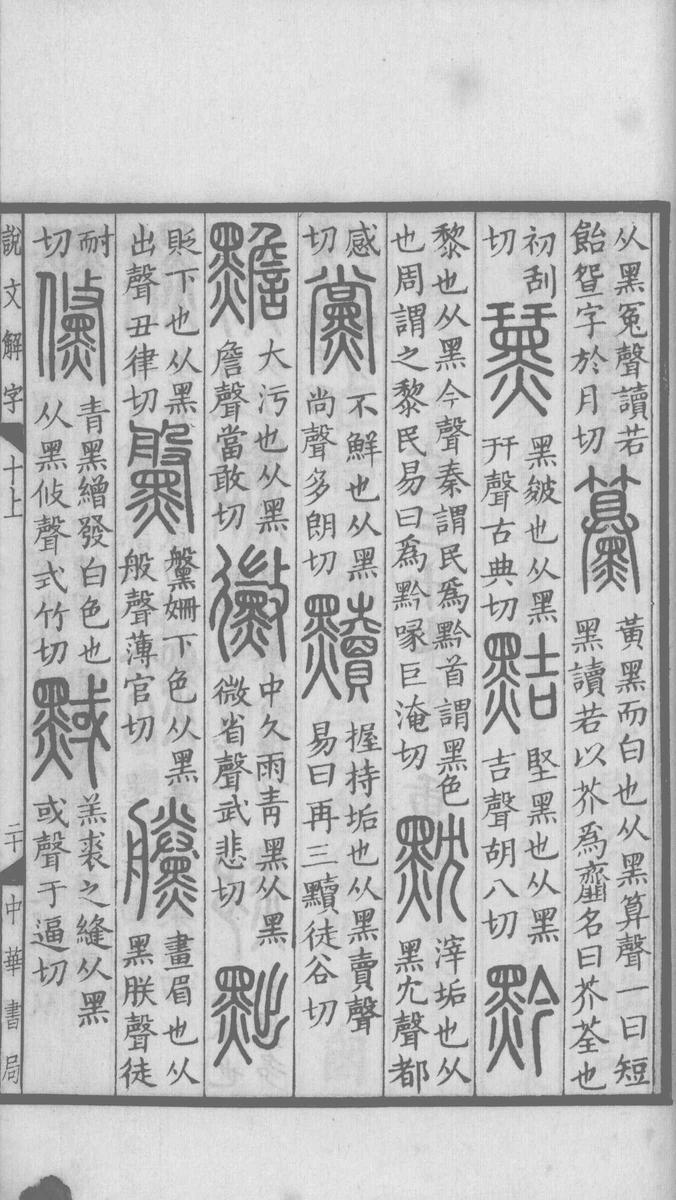 从黑冤聲讀若飴字於月切黃黑而白也从黑算聲一曰短黑讀若以芥為齏名曰芥荃也
初刮切黑皴也从黑幵聲古典切黠堅黑也从黑吉聲胡八切黔
黎也从黑今聲秦謂民爲黔首謂黑色也周謂之黎民易曰爲黔喙巨淹切黕滓垢也从黑冘聲都
感切黨不鮮也从黑尚聲多朗切黷握持垢也从黑賣聲易曰再三黷徒谷切
黵大污也从黑詹聲當敢切黴中久雨青黑从黑微省聲武悲切黜
貶下也从黑出聲丑律切姍下色从黑般聲薄官切黱畫眉也从黑朕聲徒
耐切儵青黑繒發白色也从黑攸聲式竹切羔裘之縫从黑或聲于逼切
說文解字 十上 二十 中華書局